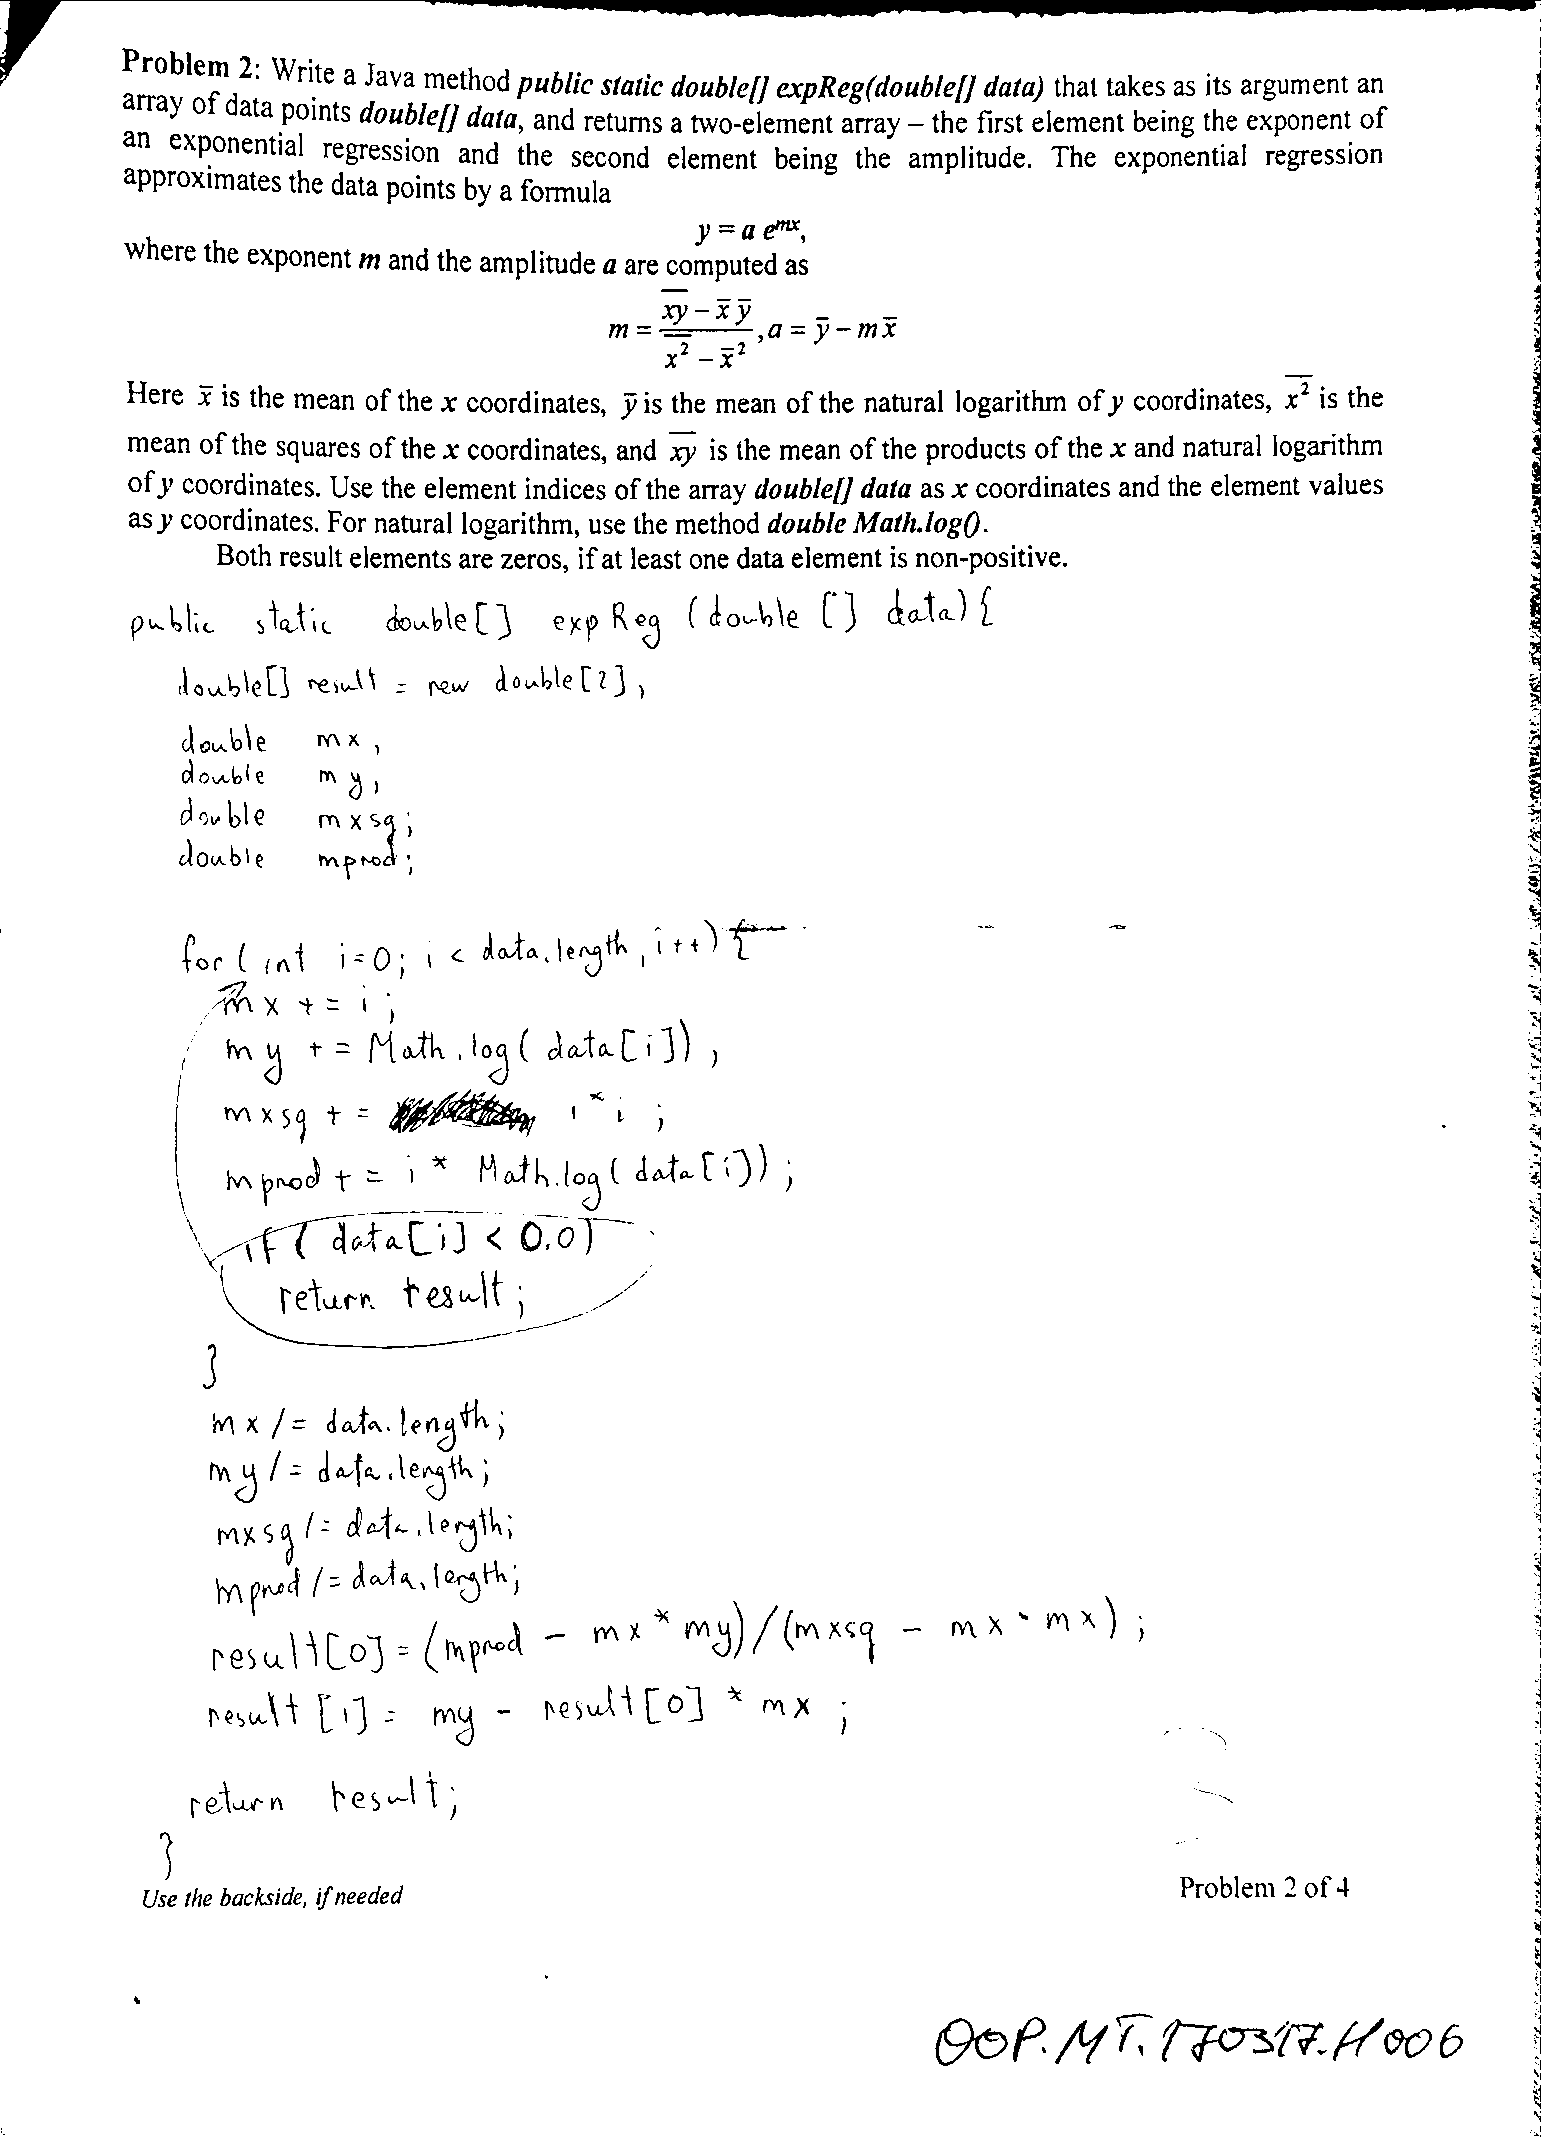 Problem 2: Write a Java method public static double[] expReg(double[] data) that takes as its argument an
array of data points double[] data, and returns a two-element array – the first element being the exponent of
an exponential regression and the second element being the amplitude. The exponential regression
approximates the data points by a formula
y = a e^{mx},
where the exponent m and the amplitude a are computed as
m = \frac{\overline{xy} - \bar{x}\bar{y}}{\overline{x^2} - \bar{x}^2}, a = \bar{y} - m\bar{x}
Here \bar{x} is the mean of the x coordinates, \bar{y} is the mean of the natural logarithm of y coordinates, \overline{x^2} is the
mean of the squares of the x coordinates, and \overline{xy} is the mean of the products of the x and natural logarithm
of y coordinates. Use the element indices of the array double[] data as x coordinates and the element values
as y coordinates. For natural logarithm, use the method double Math.log().
Both result elements are zeros, if at least one data element is non-positive.
public static double[] expReg (double [] data){
double[] result = new double[2];
double mx;
double my;
double mxsq;
double mprod;
for (int i=0; i < data.length; i++) {
mx += i;
my += Math.log( data[i]);
mxsq += i * i ;
mprod += i * Math.log( data[i]);
if ( data[i] < 0.0)
return result;
}
mx /= data.length;
my /= data.length;
mxsq /= data.length;
mprod /= data.length;
result[0] = (mprod - mx * my)/(mxsq - mx * mx);
result [1] = my - result[0] * mx ;
return result;
}
Use the backside, if needed
Problem 2 of 4
OOP.MT.170317.H006